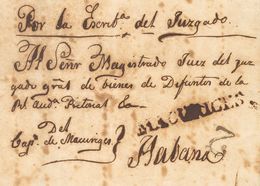 Por la Escrita del Juzgado.
Al Señr Magistrado Juez del juz
gado grãl de bienes de Difuntos de la
Rl Audª Pretorial &a
Del
Capn. de Macuriges
MACURIGES
Habana